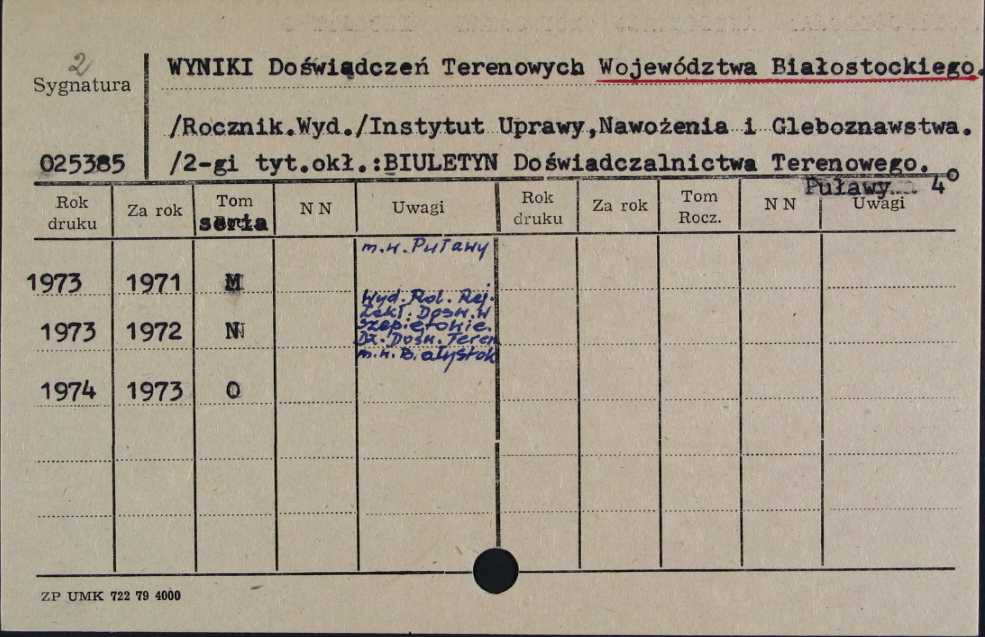 2
Sygnatura
WYNIKI Doświadczeń Terenowych Województwa Białostockiego.
/Rocznik.Wyd./Instytut Uprawy,Nawożenia i Gleboznawstwa.
025385 /2-gi tyt.okł.:BIULETYN Doświadczalnictwa Terenowego.
Puławy 4°
Rok druku Za rok Tom seria NN Uwagi Rok druku Za rok Tom Rocz. NN Uwagi
m.w. Puławy
1973 1971 M
Wyd. Rol. Rej.
Zakł. Dośw. w
1973 1972 N Szepietowie.
Dz. Dośw. Teren
m.w. Białystok
1974 1973 O
ZP UMK 722 79 4000